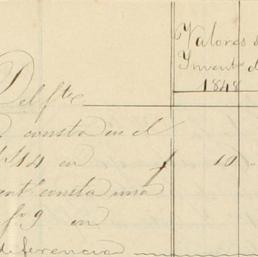 Valores
Invent d
1848
Del fte
consta en el
14 en 10
consta una
fs 9 en
diferencia